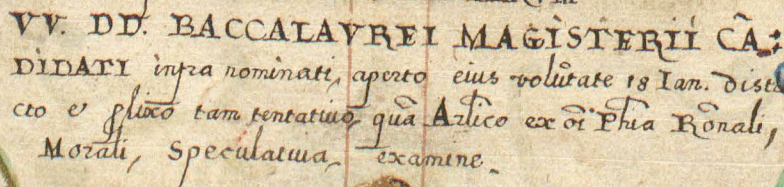 VV. DD. BACCALAVREI MAGISTERII CÃ-
DIDATI infra nominati, aperto eius volũtate 18 Ian. distri
cto & plixo tam tentativo, quã Arlico ex oĩ Phia Rõnali,
Morali, Speculatiua, examine.